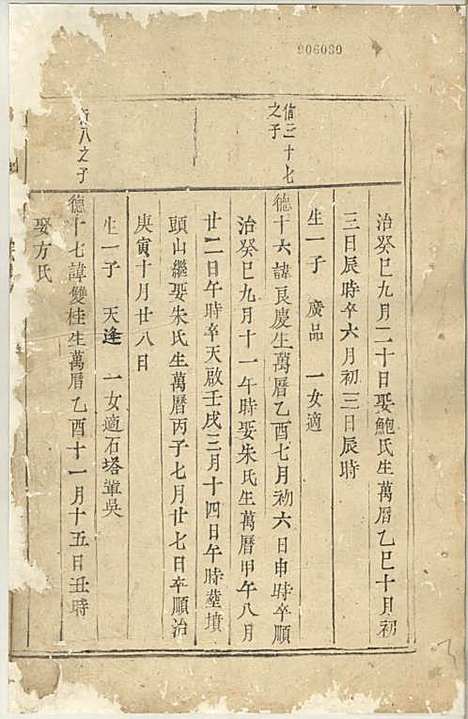 906030
治癸巳九月二十日娶鮑氏生萬曆乙巳十月初
三日辰時卒六月初三日辰時
生一子 廣品 一女適
偹三十七
之子
德十六諱良慶生萬曆乙酉七月初六日申時卒順
治癸巳九月十一午時娶朱氏生萬曆甲午八月
廿二日午時卒天啟壬戌三月十四日午時塟墳
頭山繼娶朱氏生萬曆丙子七月廿七日卒順治
庚寅十月廿八日
生一子 天逢 一女適石塔輋吳
八之子
德十七諱雙桂生萬曆乙酉十一月十五日丑時
娶方氏